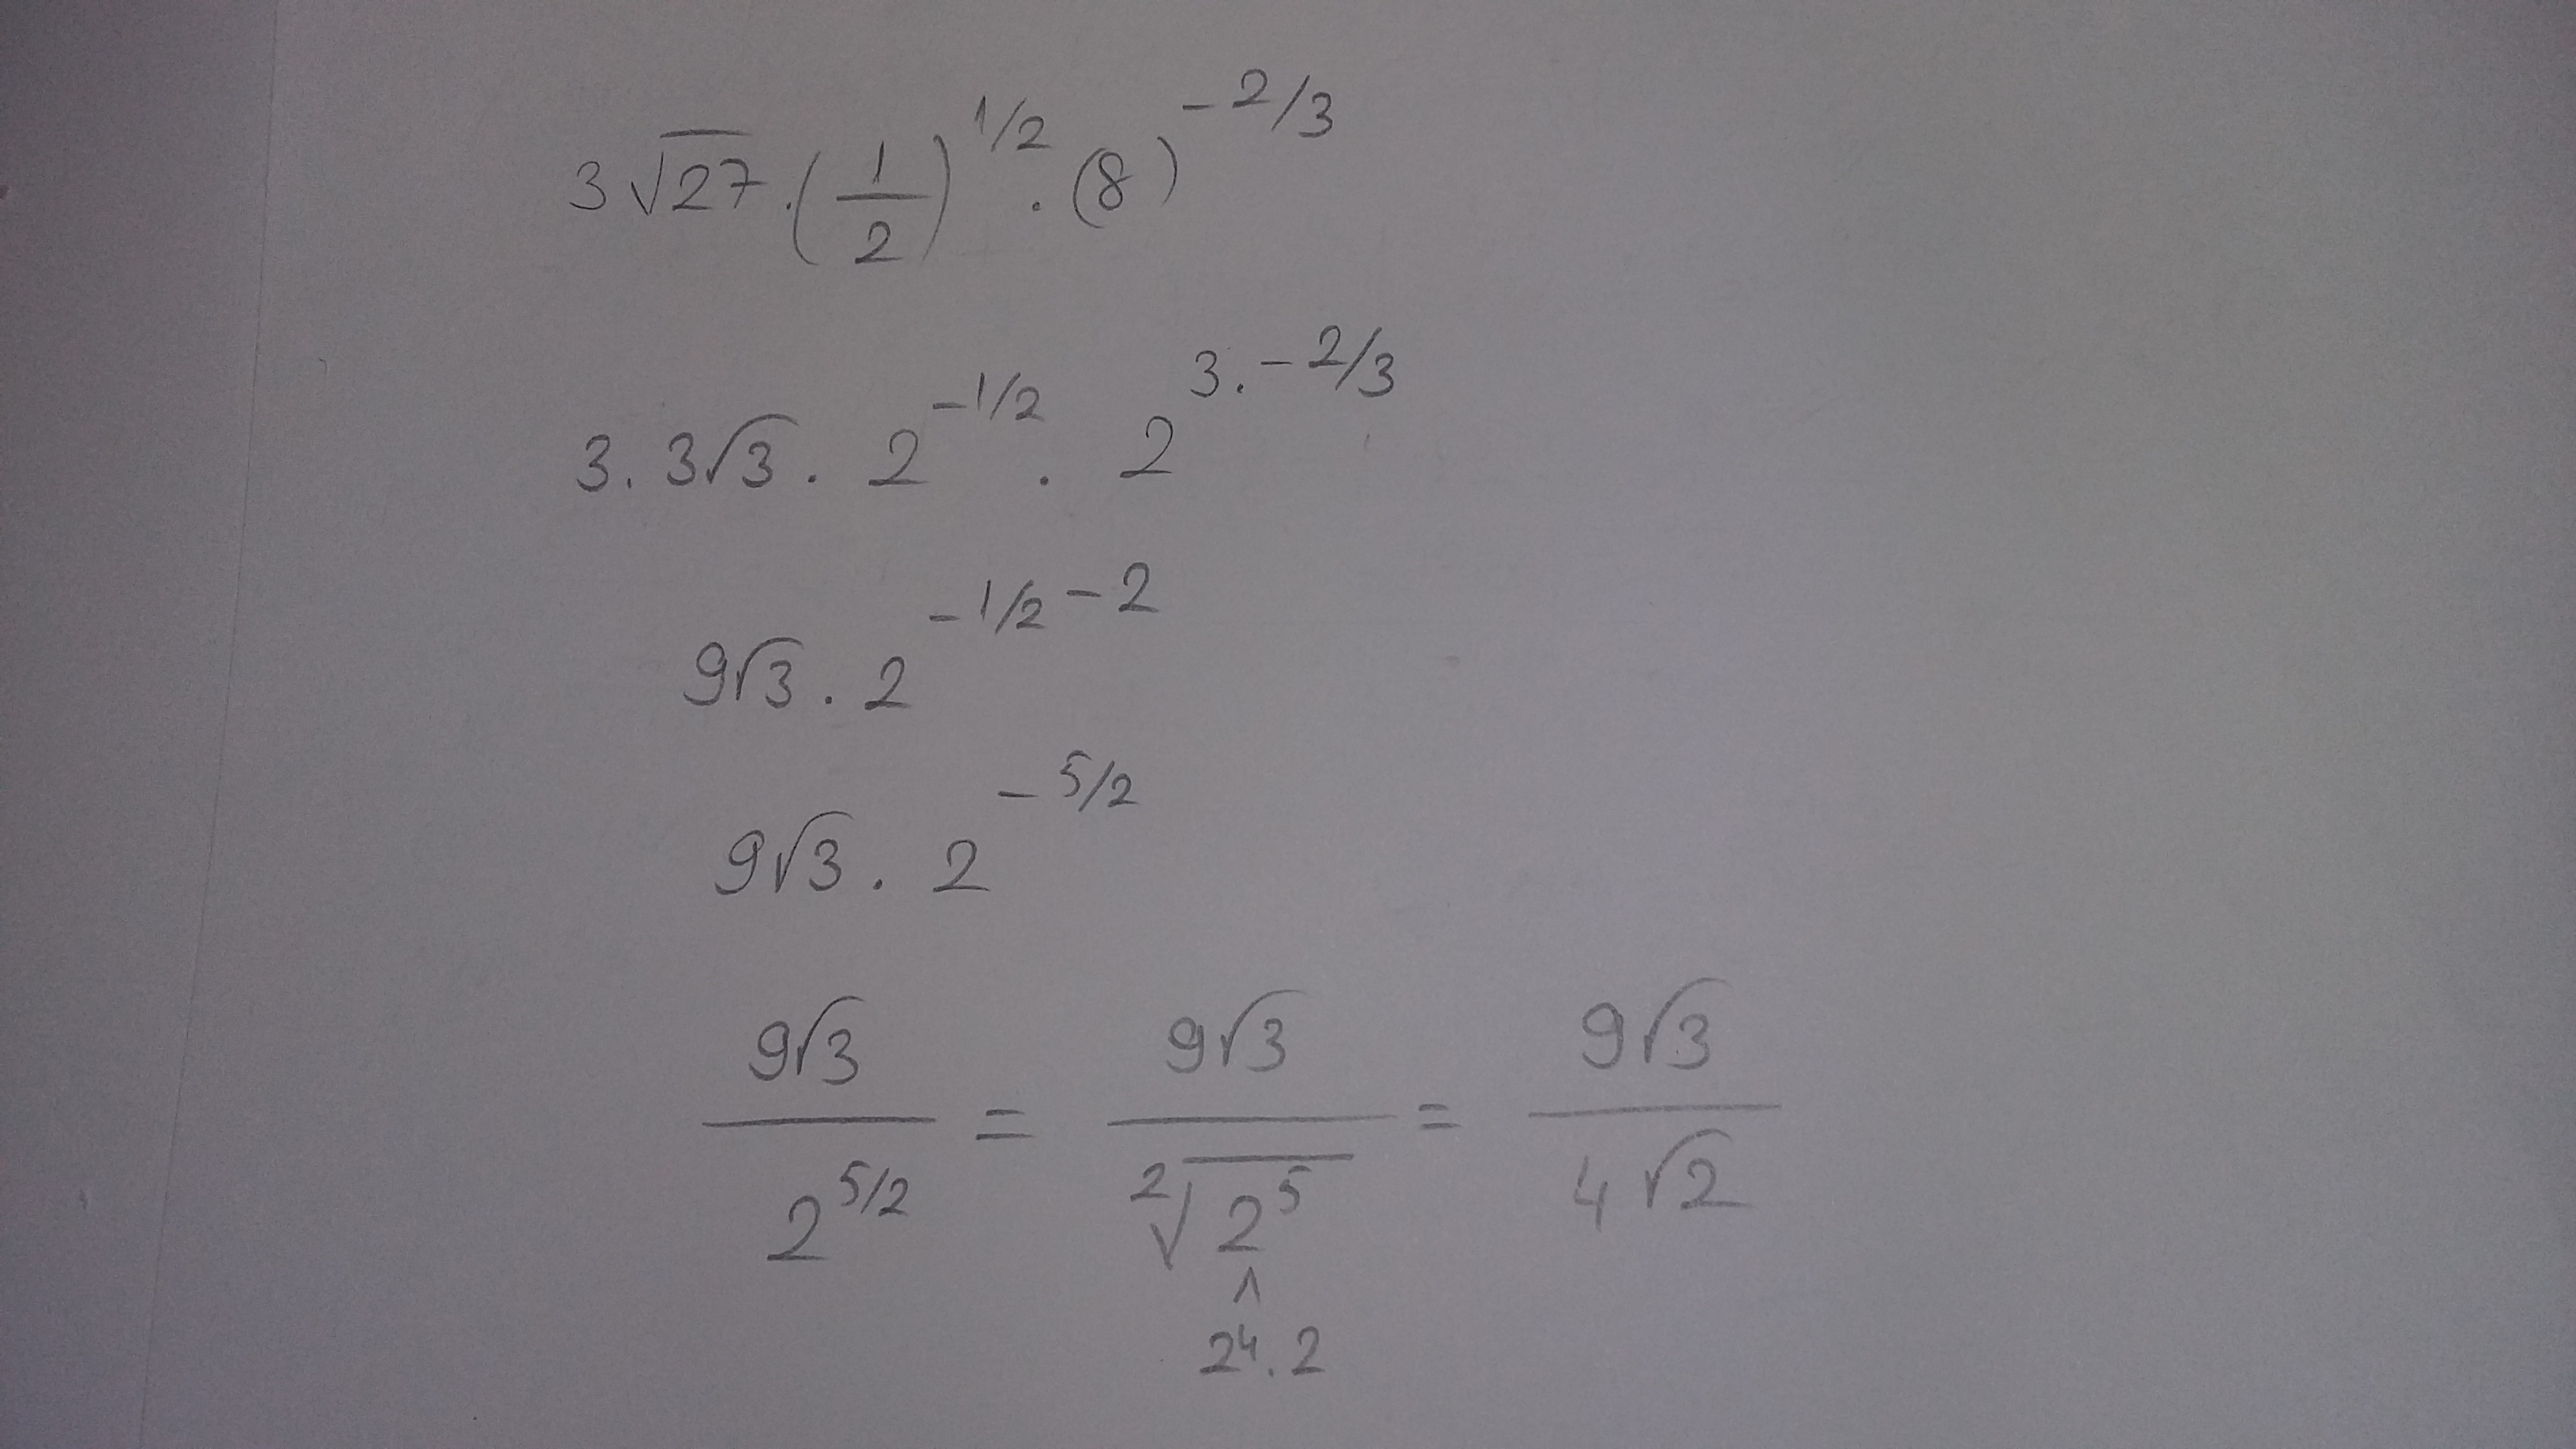 3√27 · (1/2)^1/2 · (8)^-2/3
3 . 3√3 . 2^-1/2 . 2^3.-2/3
9√3 . 2^-1/2-2
9√3 . 2^-5/2
9√3/2^5/2 = 9√3/²√2^5 = 9√3/4√2
^
2^4 . 2